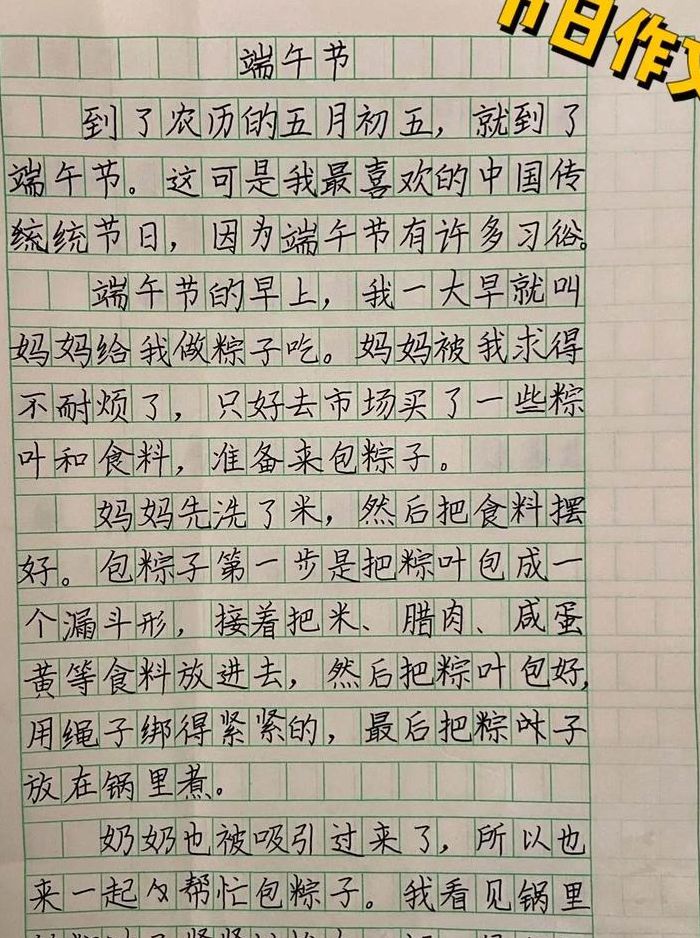 节日作文
端午节
到了农历的五月初五，就到了
端午节。这可是我最喜欢的中国传
统统节日，因为端午节有许多习俗。
端午节的早上，我一大早就叫
妈妈给我做粽子吃。妈妈被我求得
不耐烦了，只好去市场买了一些粽
叶和食料，准备来包粽子。
妈妈先洗了米，然后把食料摆
好。包粽子第一步是把粽叶包成一
个漏斗形，接着把米、腊肉、咸蛋
黄等食料放进去，然后把粽叶包好，
用绳子绑得紧紧的，最后把粽叶子
放在锅里煮。
奶奶也被吸引过来了，所以也
来一起帮忙包粽子。我看见锅里